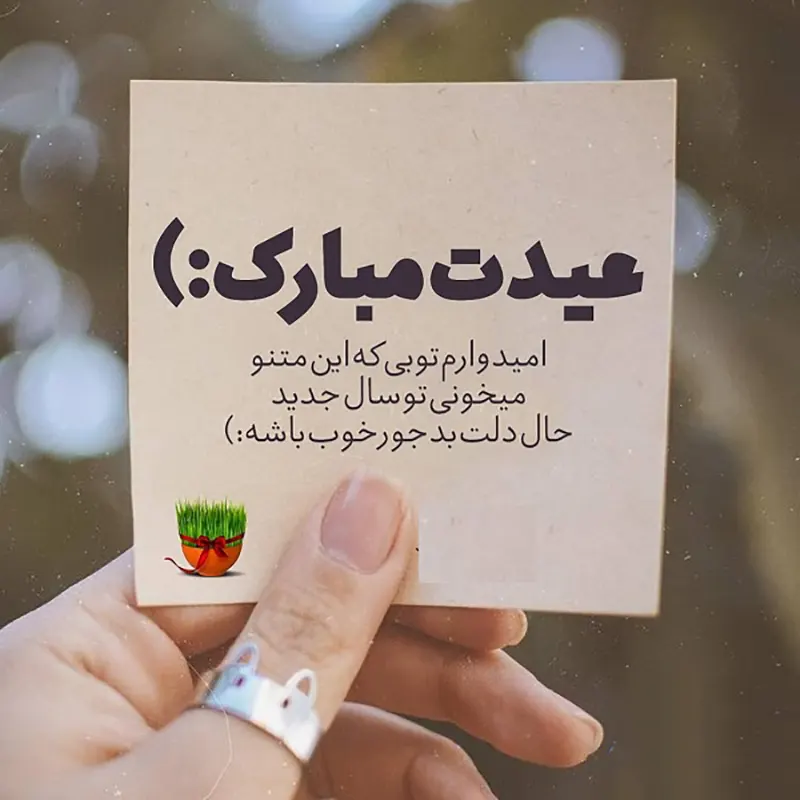 عیدت مبارک:)
امیدوارم تویی که این متنو
میخونی تو سال جدید
حال دلت بدجور خوب باشه:)